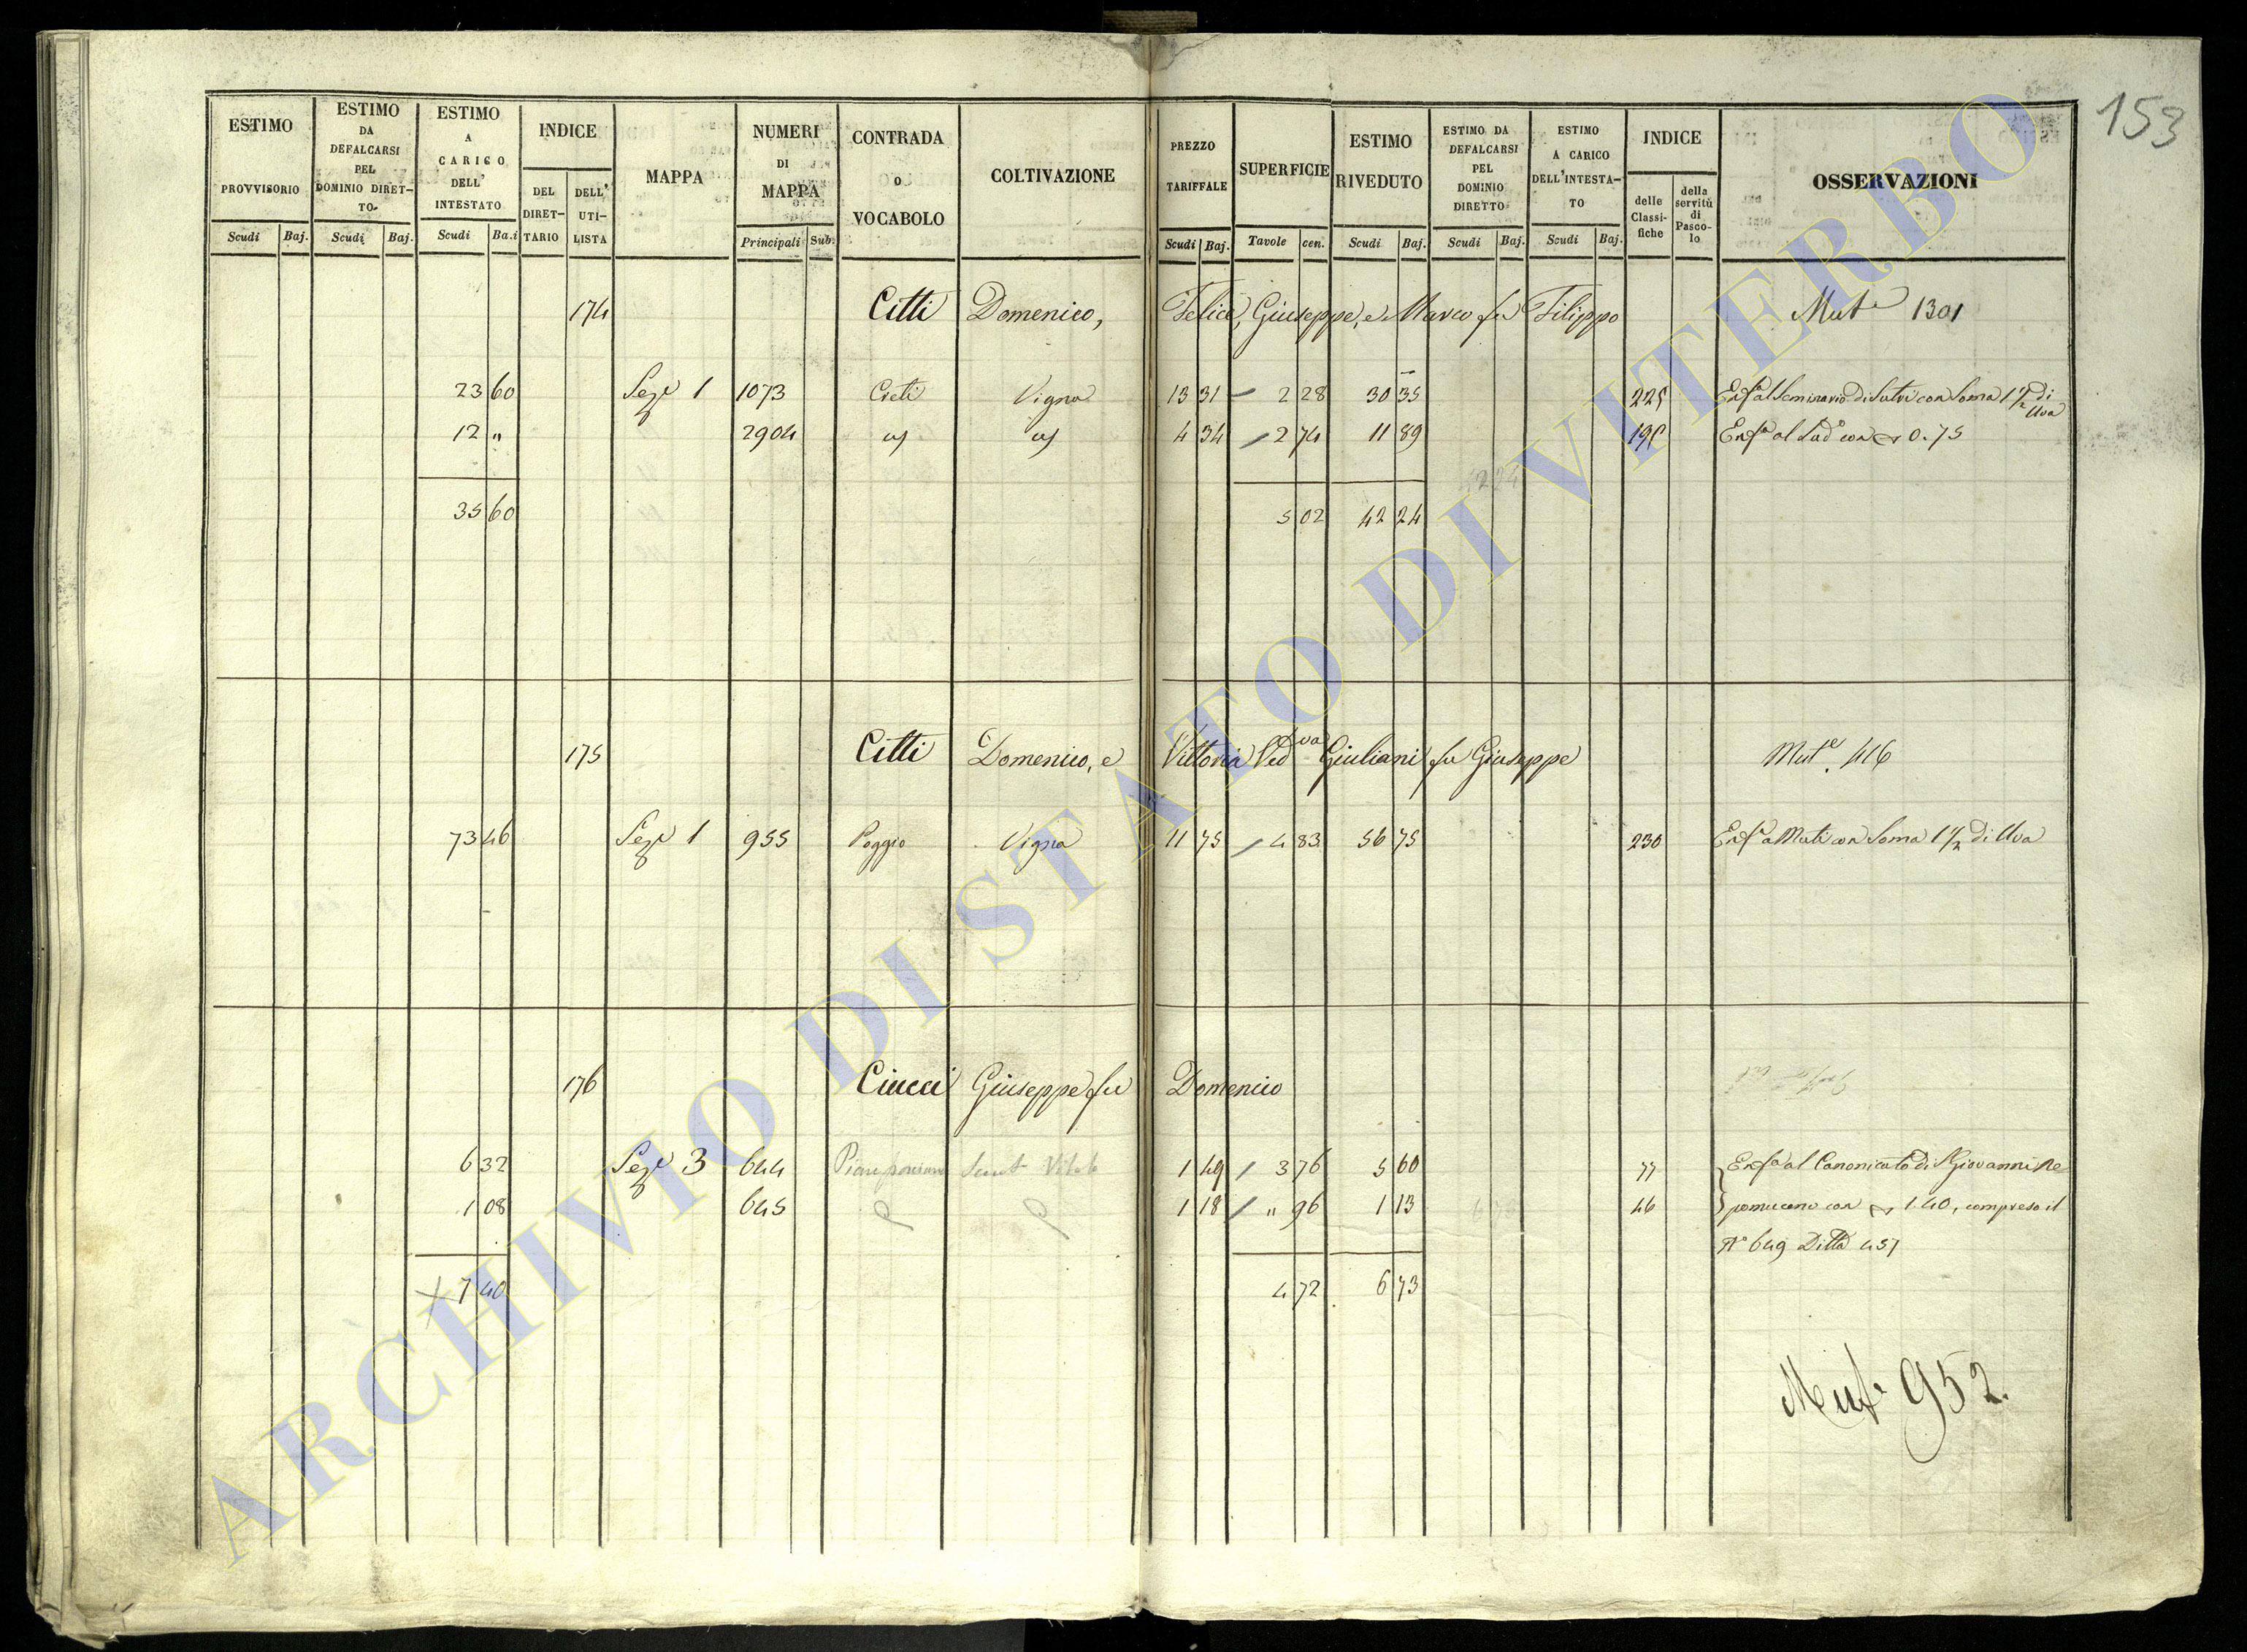 153
ESTIMO PROVVISORIO
ESTIMO DA DEFALCARSI PEL DOMINIO DIRET-TO
ESTIMO A CARICO DELL' INTESTATO
INDICE
DEL DIRET-TARIO
DELL' UTI-LISTA
MAPPA
NUMERI DI MAPPA
CONTRADA O VOCABOLO
COLTIVAZIONE
PREZZO TARIFFALE
SUPERFICIE
ESTIMO RIVEDUTO
ESTIMO DA DEFALCARSI PEL DOMINIO DIRETTO
ESTIMO A CARICO DELL'INTESTA-TO
INDICE
delle Classi-fiche
della servitù di Pasco-lo
OSSERVAZIONI
Scudi Baj. Scudi Baj. Scudi Ba.i Principali Sub. Scudi Baj. Tavole cen. Scudi Baj. Scudi Baj. Scudi Baj.
174 Citti Domenico, Felice, Giuseppe, e Marco fu Filippo Mute 1301
23 60 Seze 1 1073 Creti Vigna 13 31 2 28 30 35 225 Enfa al Seminario di Sutri con Soma 1 1/2 di Uva
12 " 2904 4 34 2 74 11 89 Enfa al Sudo con 0.75
35 60 5 02 42 24
175 Citti Domenico, e Vittoria Ved va Giuliani fu Giuseppe Mute. 416
73 46 Seze 1 955 Poggio Vigna 11 75 4 83 56 75 230 Enfa a Muti con Soma 1 1/2 di Uva
176 Ciucci Giuseppe fu Domenico
6 32 Seze 3 644 1 49 3 76 5 60 77 Enfa al Canonicato di S Giovanni Ne
1 08 645 1 18 " 96 1 13 46 pomuceno con 1.40, compreso il
No 649 Ditta 457
7 40 4 72 6 73
Mute 952.
ARCHIVIO DI STATO DI VITERBO